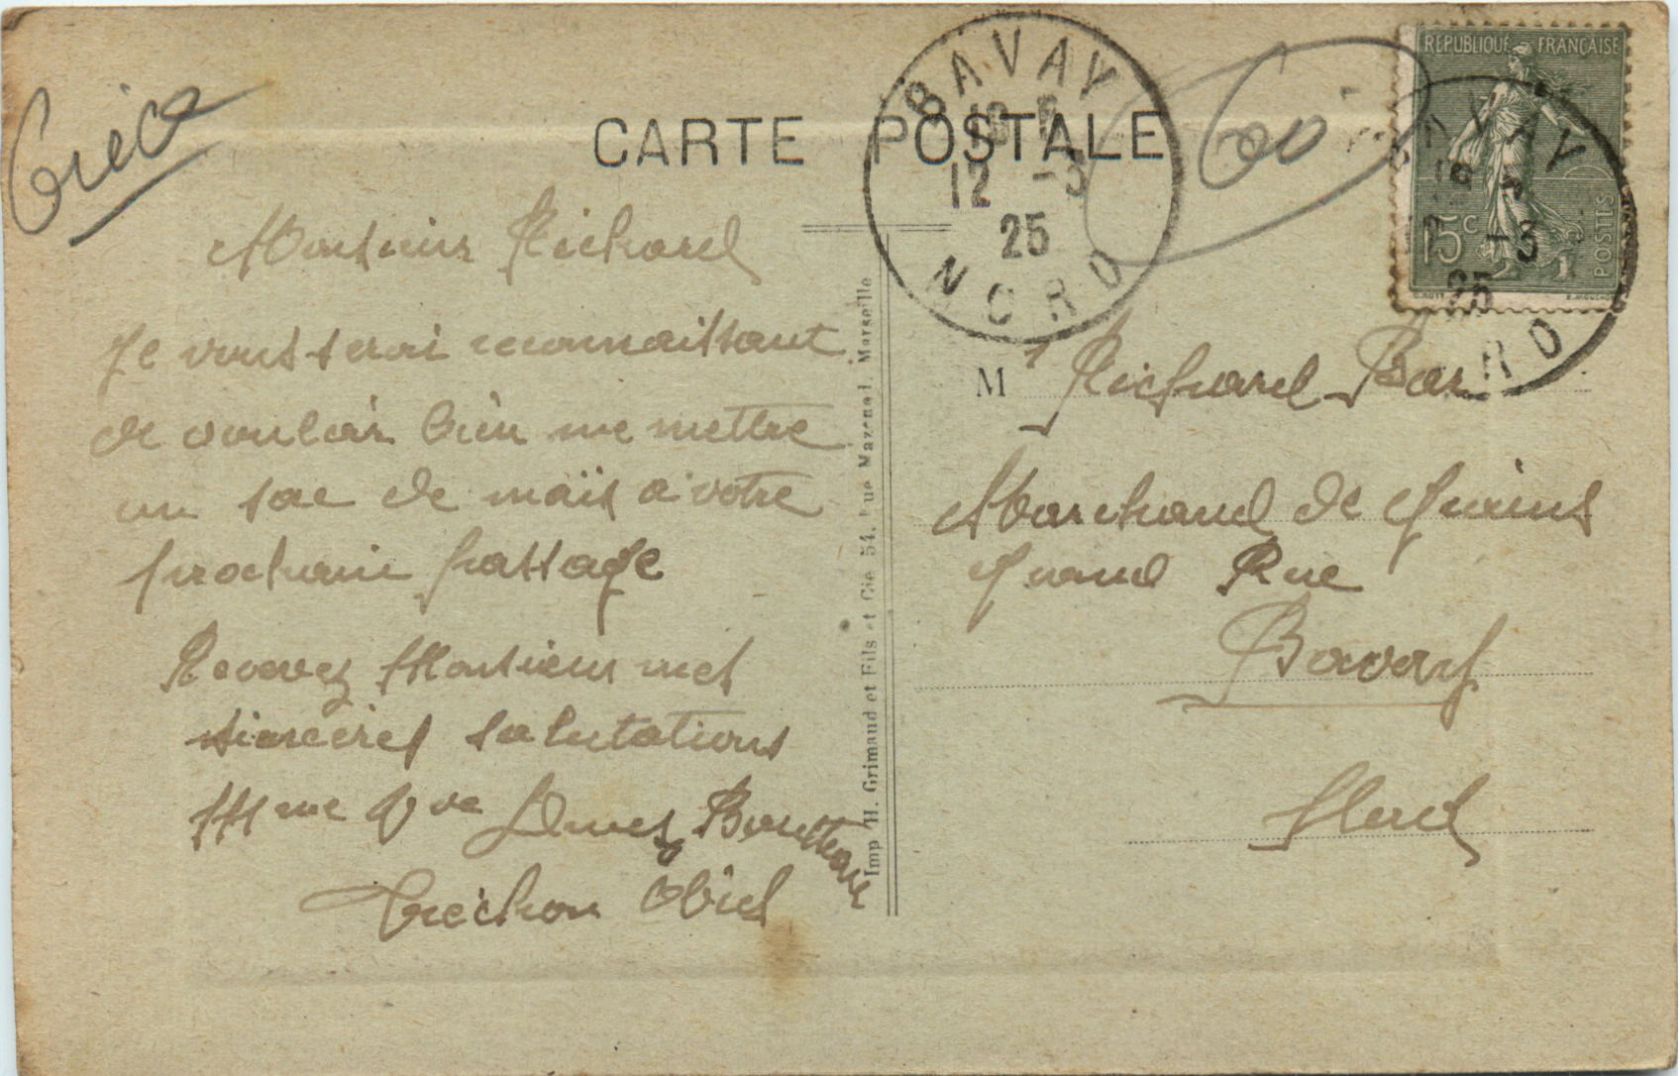 CARTE POSTALE
BAVAY
12 -3
25
NORD
REPUBLIQUE FRANÇAISE
15c
POSTES
AVAY
-3
25
RD
Monsieur Richard
Je vous serai reconnaissant
de vouloir bien me mettre
un sac de maïs a votre
prochain passage
Recevez Monsieur mes
sincères salutations
Mme Vve
Imp H. Grimaud et Fils et Cie 54, Rue Mazenod, Marseille
M r Richard
Marchand de Grains
Grand Rue
Bavay
Nord